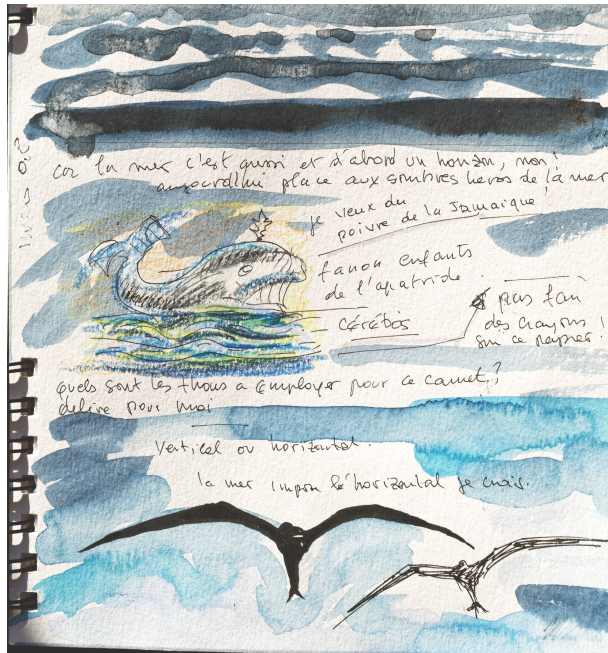 car la mer c'est aussi et d'abord un horizon, non!
aujourd'hui place aux sombres heros de la mer
je veux du
poivre de la Jamaïque!
fanon enfants
de l'apatride.
CÉRÉBOS
pas fan
des crayons!
sur ce papier.
quels sont les à employer pour ce carnet?
délire pour moi
Vertical ou horizontal.
la mer impose l'horizontal je crois.